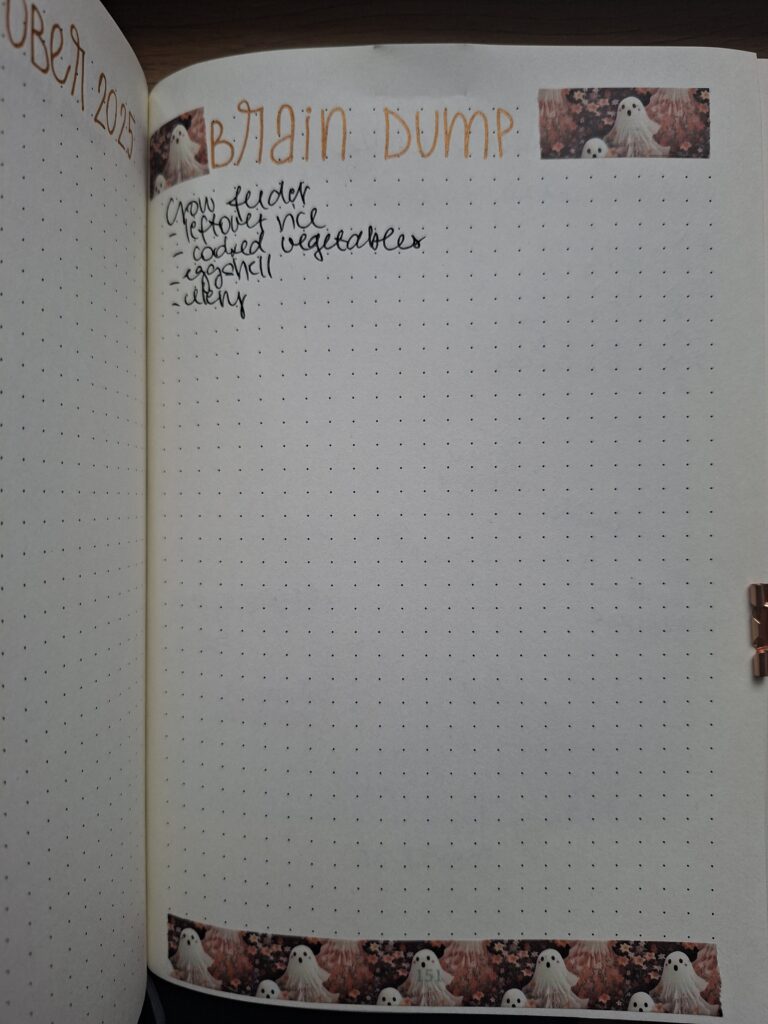 OBER 2025
BRAIN DUMP
Crow feeder
- leftover rice
- cooked vegetables
- eggshell
-
151